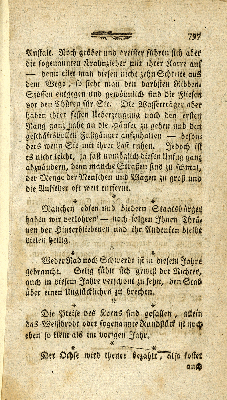 797
Anstalt. Noch gröber und dreister führen sich aber
die sogenannten Krahnzieher mit ihrer Karre auf
— denn eilet man diesen nicht zehn Schritte aus
dem Wege, so siehet man den derbsten Ribben-
Stößen entgegen und gewöhnlich sind die Fliesen
vor den Thüren für Sie. Die Wasserträger aber
haben ihrer festen Ueberzeugung nach den ersten
Rang ganz nahe an die Häuser zu gehen und den
geschäftslosen Fußgänger aufzuhalten — beson-
ders wenn Sie mit ihrer Last ruhen. Jedoch ist
es nicht leicht, ja fast unmöglich diesen Unfug ganz
abzuändern, denn manche Straßen sind zu schmal,
der Menge der Menschen und Wagen zu groß und
die Aufseher oft weit entfernt.
Manchen edlen und biedern Staatsbürger
haben wir verlohren — noch folgen Ihnen Thrä-
nen der Hinterbliebenen und ihr Andenken bleibt
vielen heilig.
Weder Rad noch Schwerdt ist in diesem Jahre
gebraucht. Selig fühlt sich gewiß der Richter,
auch in diesem Jahre verschont zu seyn, den Stab
über einen Unglücklichen zu brechen.
Die Preise des Korns sind gefallen, allein
das Weißbrodt oder sogenannte Rundstück ist noch
eben so klein als im vorigen Jahr.
Der Ochse wird theuer bezahlt, also kostet
auch